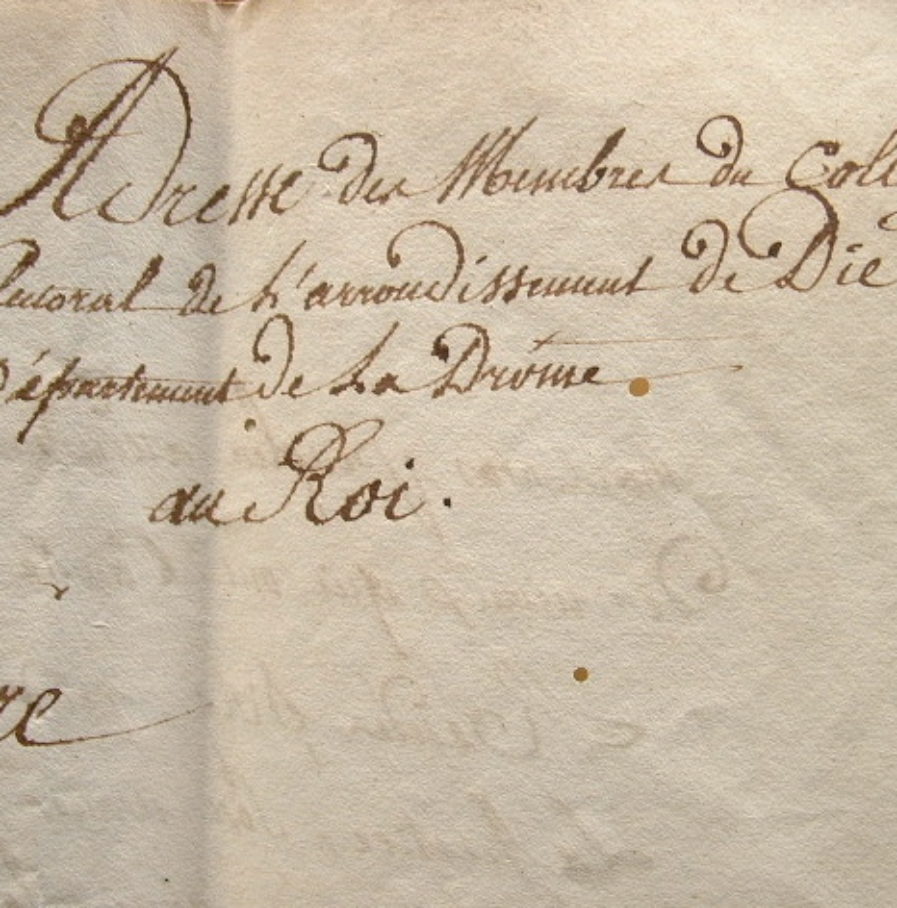 Adresse des Membres du Coll
lectoral de L'arrondissement de Die
Département de La Drôme
au Roi.
re